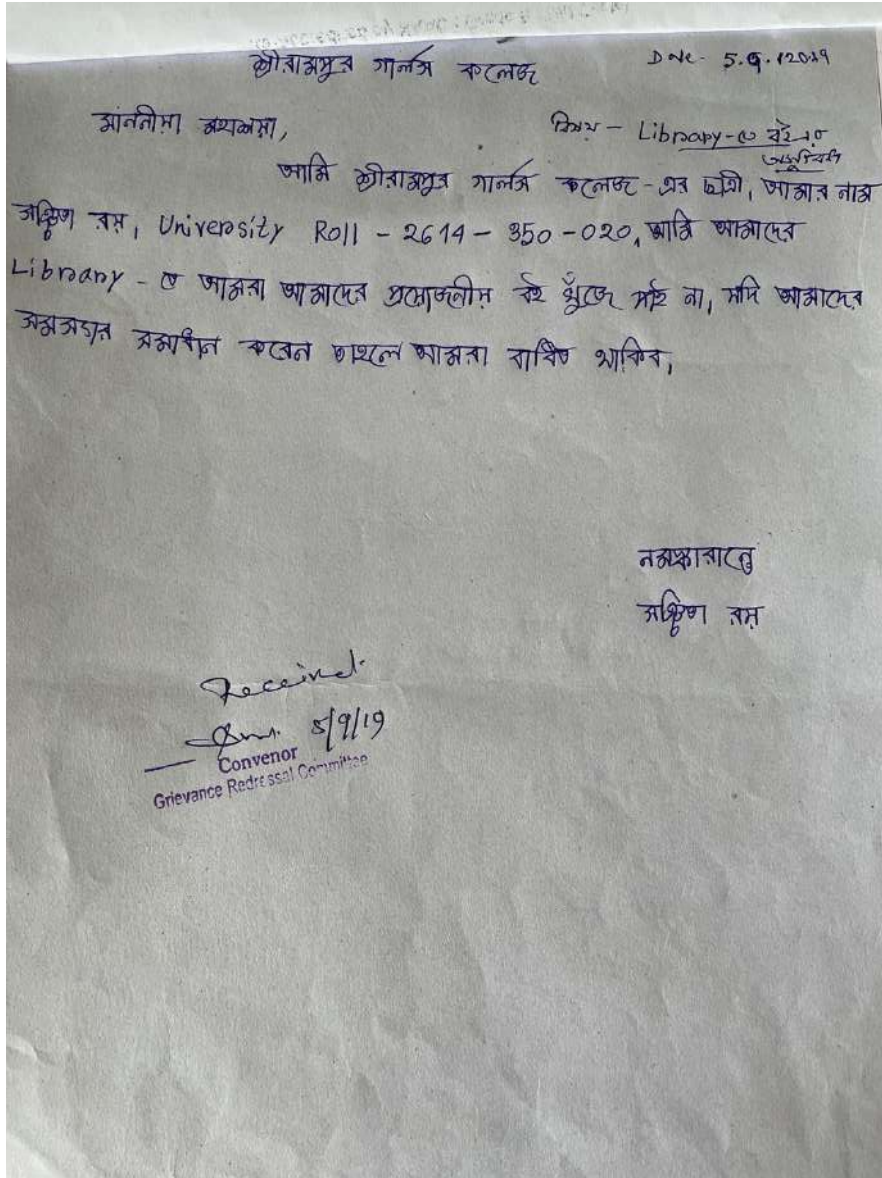 শ্রীরামপুর গার্লস কলেজ
Date - 5.9.2019
মাননীয়া অধ্যক্ষা,
বিষয় - Library-তে বই এর
অসুবিধা
আমি শ্রীরামপুর গার্লস কলেজ-এর ছাত্রী, আমার নাম
রায়, University Roll - 2614 - 350 - 020, আমি আমাদের
Library - তে আমরা আমাদের প্রয়োজনীয় বই খুঁজে পাই না, যদি আমাদের
সমস্যার সমাধান করেন তাহলে আমরা বাধিত থাকিব,
নমস্কারান্তে
রায়
Received
5/9/19
Convenor
Grievance Redressal Committee